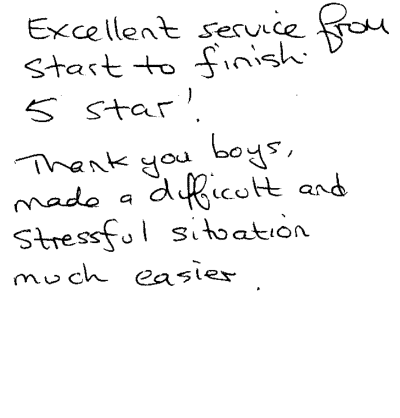 Excellent service from
start to finish.
5 star!
Thank you boys,
made a difficult and
stressful situation
much easier.